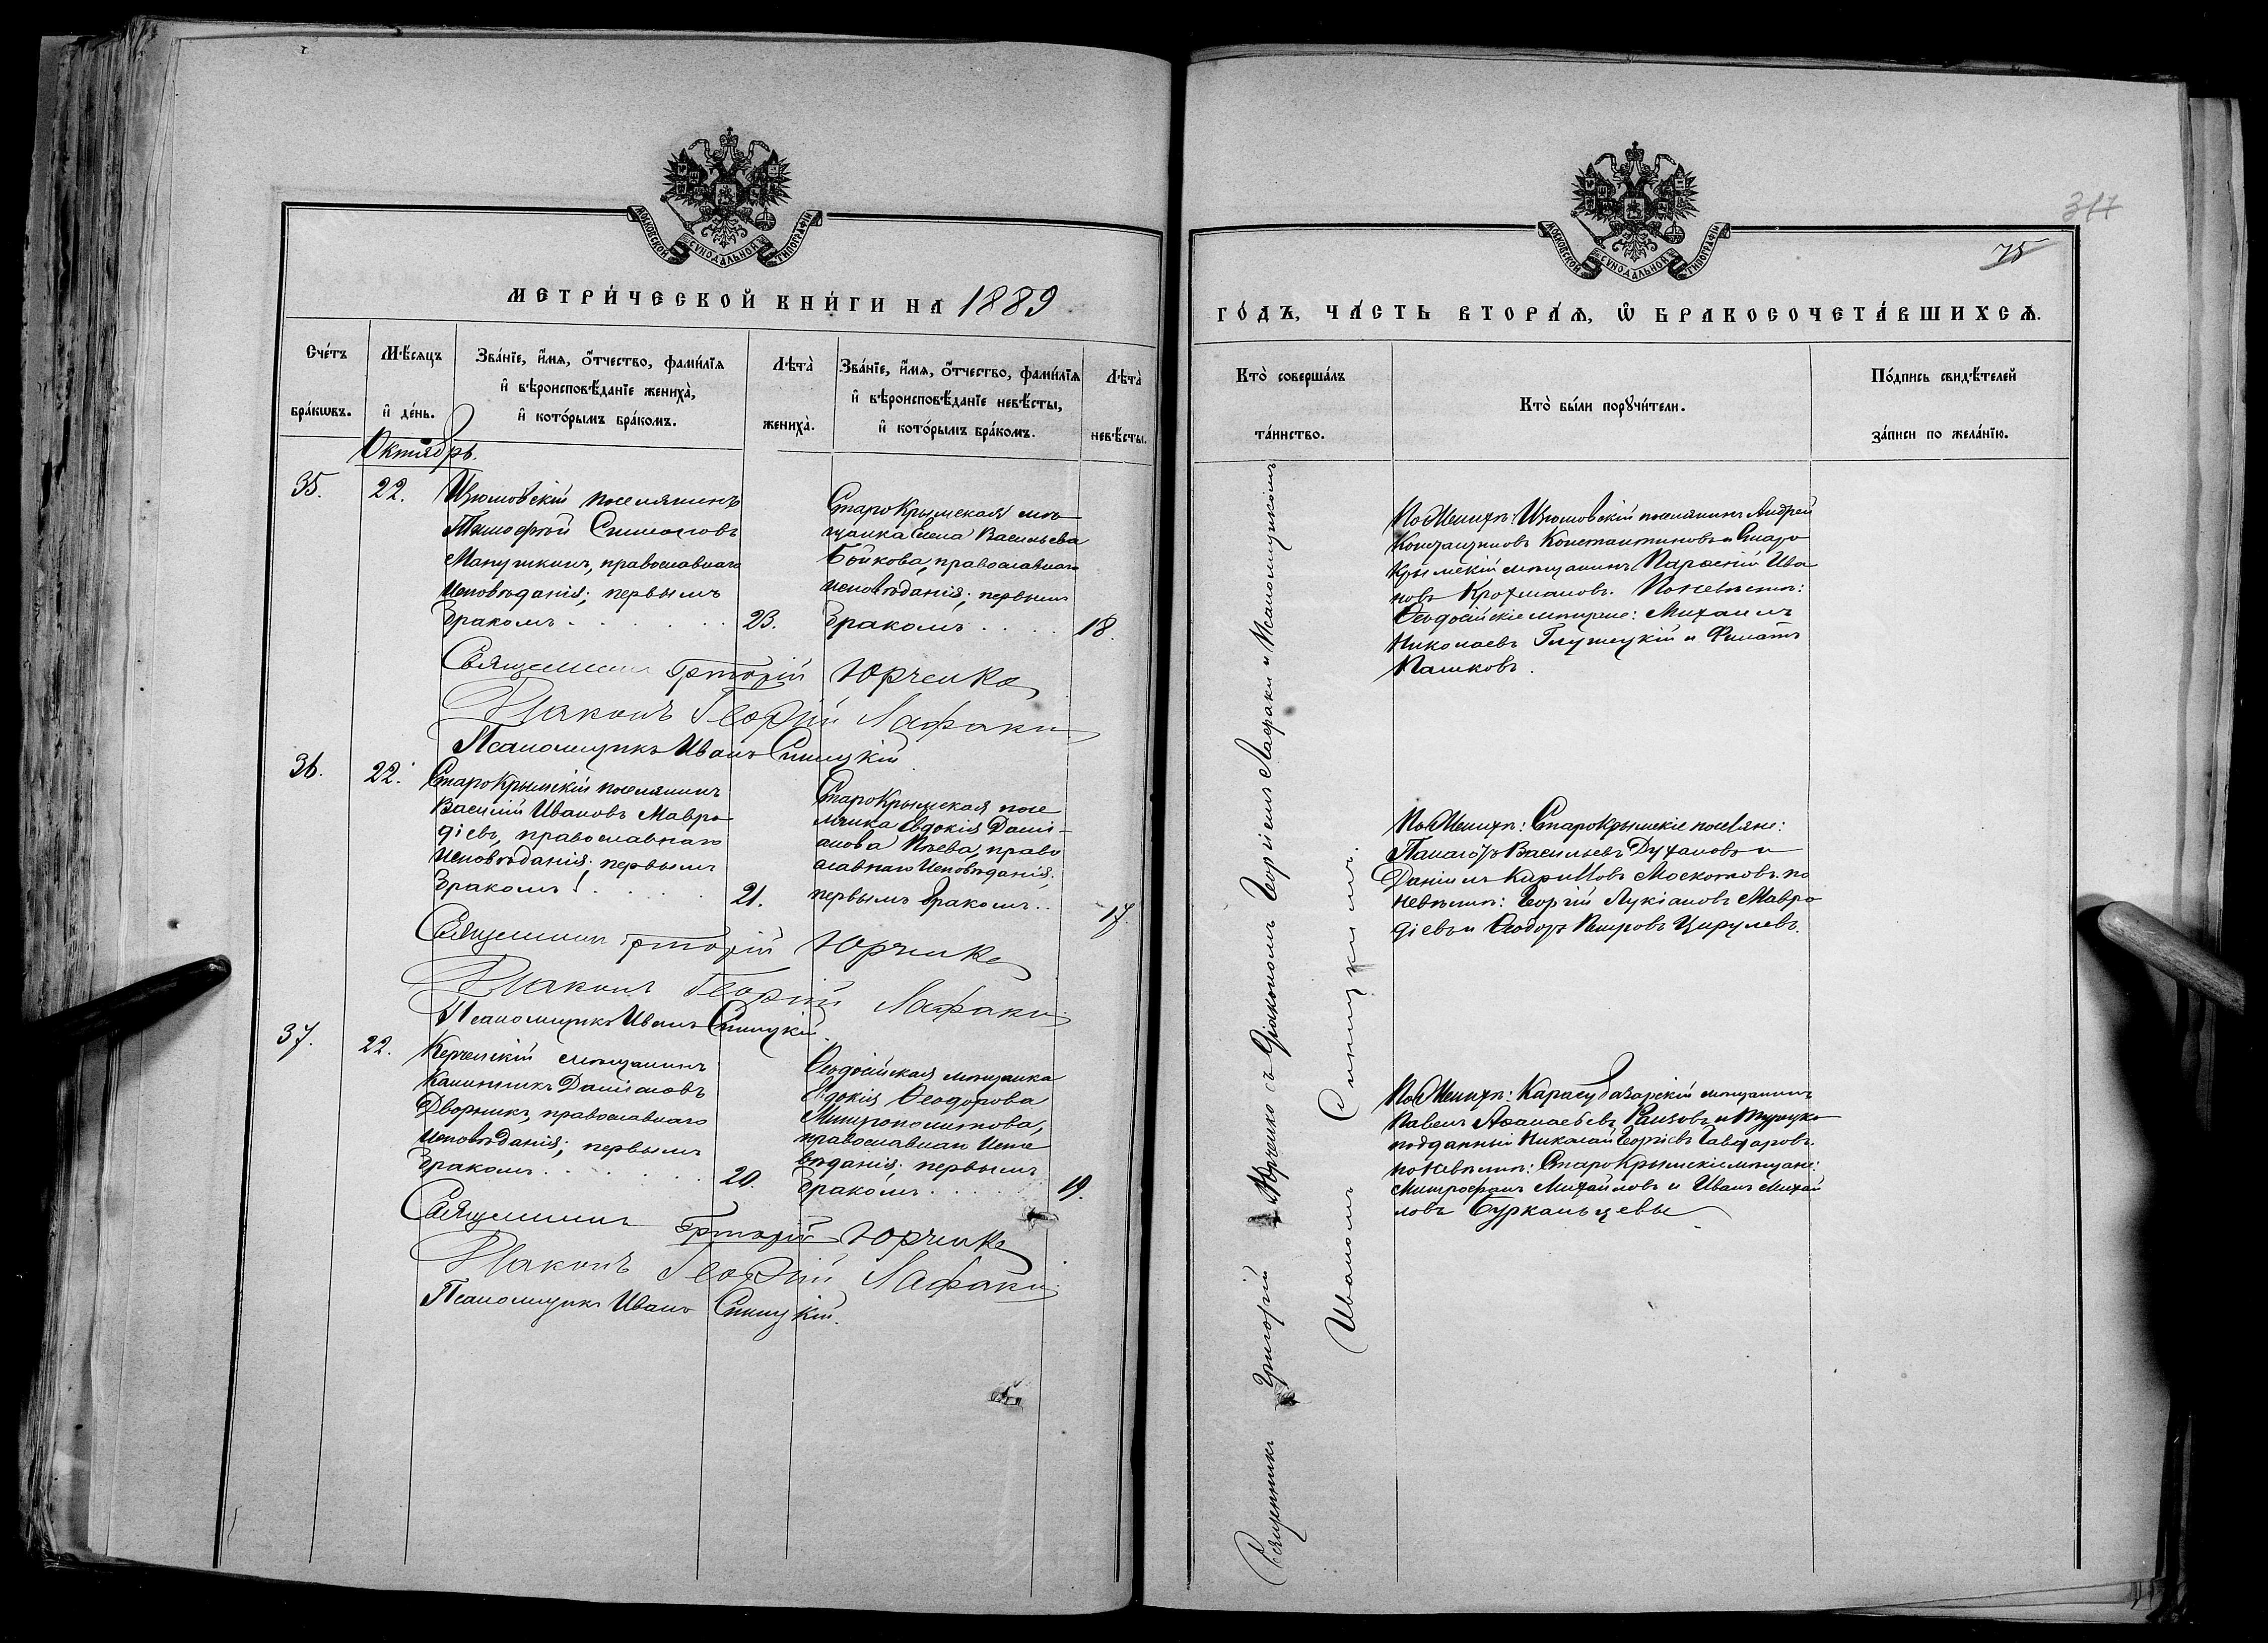 МОСКОВСКОЙ СѴНОДАЛЬНОЙ ТИПОГРАФІИ
МЕТРИ́ЧЕСКОЙ КНИ́ГИ НА 1889
Сче́тъ бра́кѡвъ.
Мѣ́сяцъ и҆ де́нь.
Зва́нїе, и҆́мѧ, ѻ҆́тчество, фами́лїѧ
и҆ вѣроисповѣ́данїе жениха̀,
и҆ кото́рымъ бра́комъ.
Лѣта̀
жениха̀.
Зва́нїе, и҆́мѧ, ѻ҆́тчество, фами́лїѧ
и҆ вѣроисповѣ́данїе невѣ́сты,
и҆ кото́рымъ бра́комъ.
Лѣта̀
невѣ́сты.
Октябрь.
35.
22.
Изюмовскій поселянинъ
Тимофей Симоновъ
православнаго
исповѣданія; первымъ
бракомъ
23.
СтароКрымская мѣ
щанка Елена Васильева
Бойкова, православнаго
исповѣданія; первымъ
бракомъ
18.
Священникъ Григорій Юрченко
Діаконъ Георгій Лафаки
Псаломщикъ Иванъ Синицкій
36.
22.
СтароКрымскій поселянинъ
Василій Ивановъ Мавро
діевъ, православнаго
исповѣданія; первымъ
бракомъ
21.
СтароКрымская посе
лянка Евдокія Даніи-
лова право
славнаго исповѣданія;
первымъ бракомъ
17.
Священникъ Григорій Юрченко
Діаконъ Георгій Лафаки
Псаломщикъ Иванъ Синицкій
37.
22.
Керченскій мѣщанинъ
Калинникъ Даніиловъ
Дворникъ, православнаго
исповѣданія; первымъ
бракомъ
20.
Ѳеодосійская мѣщанка
Евдокія Ѳеодорова
Митрополитова,
православнаго испо
вѣданія; первымъ
бракомъ
19.
Священникъ Григорій Юрченко
Діаконъ Георгій Лафаки
Псаломщикъ Иванъ Синицкій.
317
75
МОСКОВСКОЙ СѴНОДАЛЬНОЙ ТИПОГРАФІИ
ГО́ДЪ, ЧА́СТЬ ВТОРА́Ѧ, Ѽ БРАКОСОЧЕТА́ВШИХСѦ.
Кто̀ соверша́лъ
та́инство.
Кто̀ бы́ли порꙋчи́тели.
По́дпись свидѣ́телей
за́писи по жела́нїю.
Священникъ Григорій Юрченко съ діакономъ Георгіемъ Лафаки и Псаломщикомъ
Иваномъ Синицкимъ.
По Женихѣ: Изюмовскій поселянинъ Андрей
Константиновъ и Старо
Крымскій мѣщанинъ Ива
новъ По невѣстѣ:
Ѳеодосійскіе мѣщане: Михаилъ
Николаевъ и Филатъ
Пашковъ.
По Женихѣ: СтароКрымскіе поселяне:
Панаіотъ Васильевъ Духановъ и
Даніилъ Кирилловъ Москотовъ. по
невѣстѣ: Георгій Лукіановъ Мавро
діевъ и Ѳеодоръ Петровъ Цирулевъ.
По Женихѣ: Карасубазарскій мѣщанинъ
Павелъ Аѳанасьевъ и Турецко
подданный Николай Георгіевъ
по невѣстѣ: СтароКрымскіе мѣщане:
Митрофанъ Михайловъ и Иванъ Михай
ловъ Буркальцевы